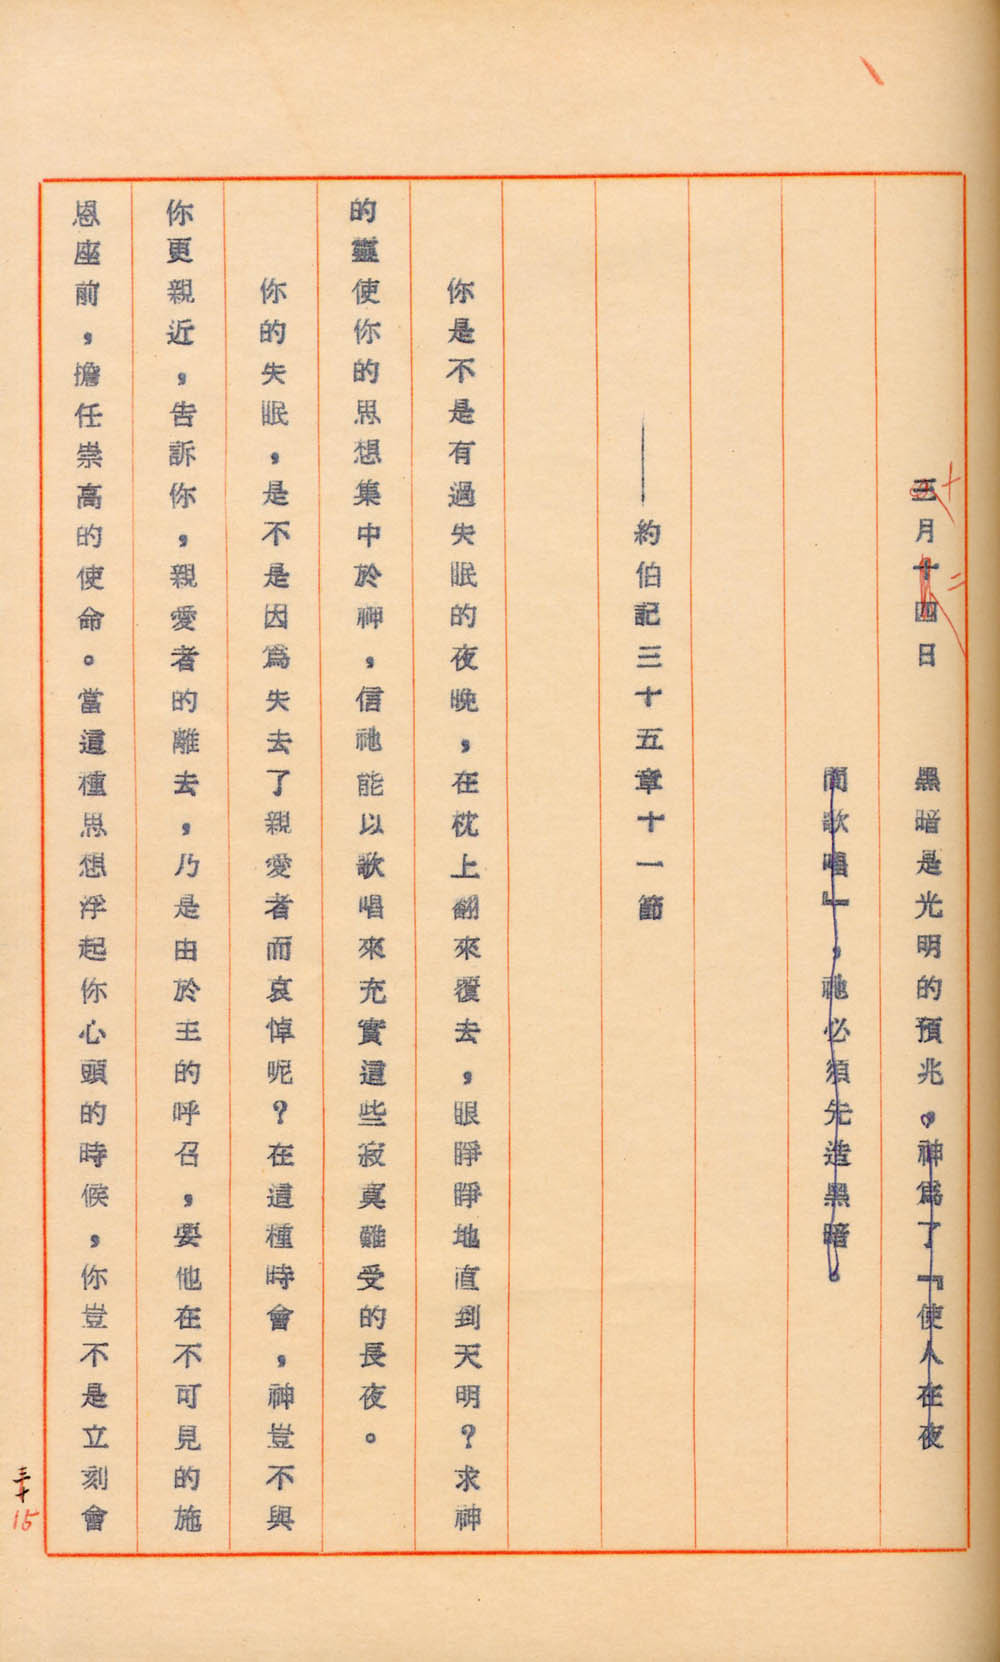 三月十四日　黑暗是光明的預兆，神爲了『使人在夜
間歌唱』，祂必須先造黑暗。
——約伯記三十五章十一節
你是不是有過失眠的夜晚，在枕上翻來覆去，眼睜睜地直到天明？求神
的靈使你的思想集中於神，信祂能以歌唱來充實這些寂寞難受的長夜。
你的失眠，是不是因爲失去了親愛者而哀悼呢？在這種時會，神豈不與
你更親近，告訴你，親愛者的離去，乃是由於主的呼召，要他在不可見的施
恩座前，擔任崇高的使命。當這種思想浮起你心頭的時候，你豈不是立刻會
十
二
三十
15